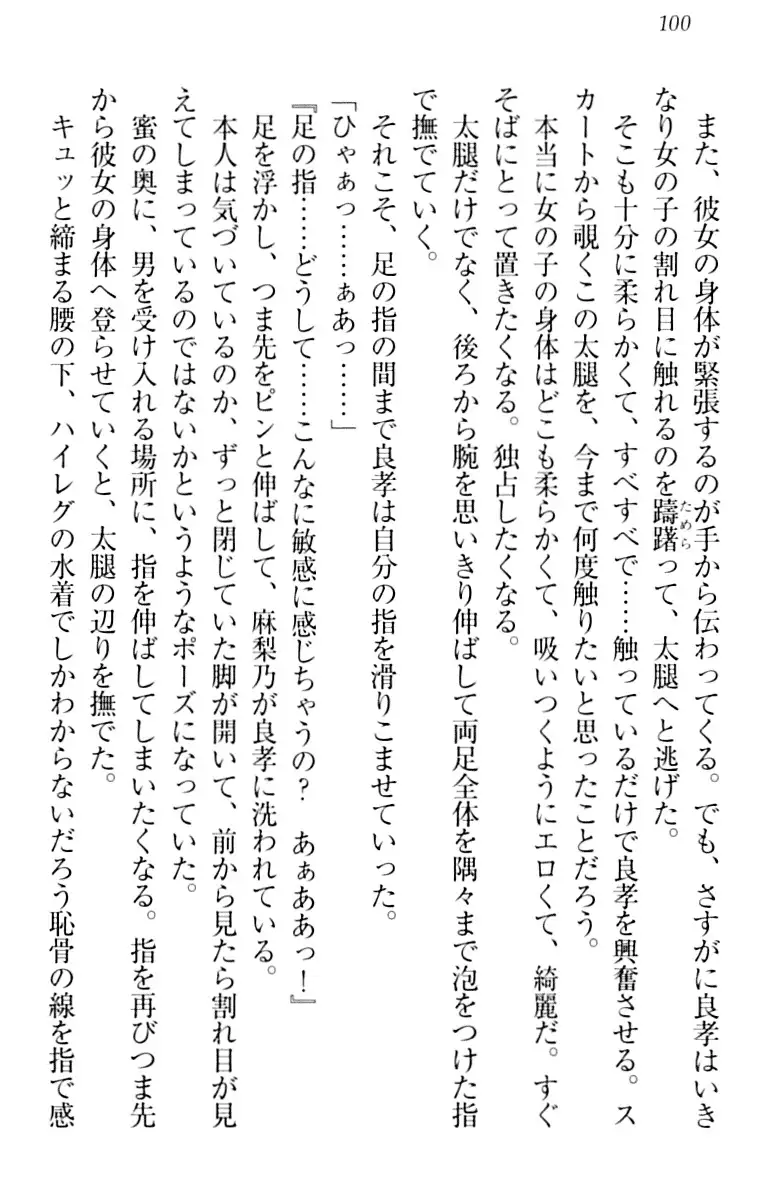 100
また、彼女の身体が緊張するのが手から伝わってくる。でも、さすがに良孝はいき
なり女の子の割れ目に触れるのを躊躇って、太腿へと逃げた。
ためら
そこも十分に柔らかくて、すべすべで……触っているだけで良孝を興奮させる。ス
カートから覗くこの太腿を、今まで何度触りたいと思ったことだろう。
本当に女の子の身体はどこも柔らかくて、吸いつくようにエロくて、綺麗だ。すぐ
そばにとって置きたくなる。独占したくなる。
太腿だけでなく、後ろから腕を思いきり伸ばして両足全体を隅々まで泡をつけた指
で撫でていく。
それこそ、足の指の間まで良孝は自分の指を滑りこませていった。
「ひゃぁっ……ぁあっ……」
『足の指……どうして……こんなに敏感に感じちゃうの？　あぁああっ！』
足を浮かし、つま先をピンと伸ばして、麻梨乃が良孝に洗われている。
本人は気づいているのか、ずっと閉じていた脚が開いて、前から見たら割れ目が見
えてしまっているのではないかというようなポーズになっていた。
蜜の奥に、男を受け入れる場所に、指を伸ばしてしまいたくなる。指を再びつま先
から彼女の身体へ登らせていくと、太腿の辺りを撫でた。
キュッと締まる腰の下、ハイレグの水着でしかわからないだろう恥骨の線を指で感